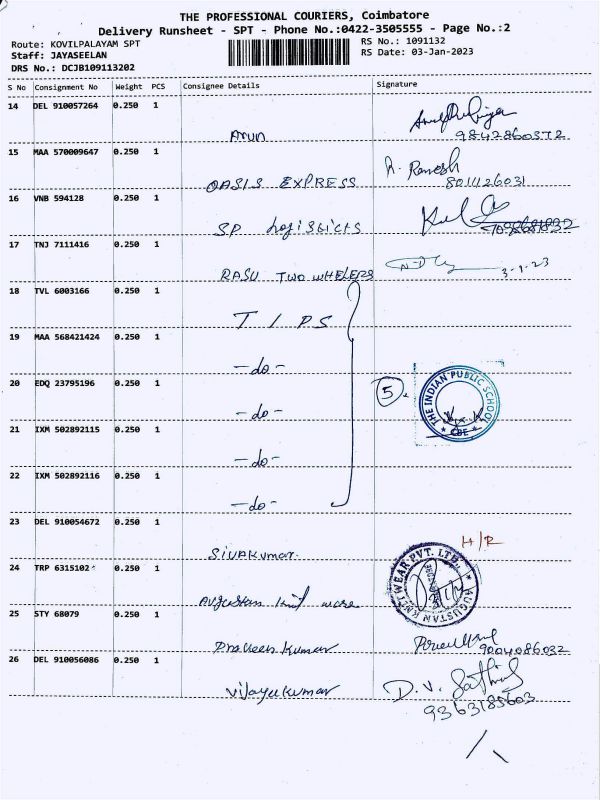 THE PROFESSIONAL COURIERS, Coimbatore
Delivery Runsheet - SPT - Phone No.:0422-3505555 - Page No.:2
Route: KOVILPALAYAM SPT
RS No.: 1091132
Staff: JAYASEELAN
RS Date: 03-Jan-2023
DRS No.: DCJB109113202
S No Consignment No Weight PCS Consignee Details Signature
14 DEL 910057264 0.250 1
Arun 9842860372
15 MAA 570009647 0.250 1 R. Ramesh
OASIS EXPRESS 801126031
16 VNB 594128 0.250 1
SP Logisticts
17 TNJ 7111416 0.250 1
RASU TWO WHELERS 3-1-23
18 TVL 6003166 0.250 1
T I P S
19 MAA 568421424 0.250 1
-do-
20 EDQ 23795196 0.250 1 5. THE INDIAN PUBLIC SCHOOL * CBE *
-do-
21 IXM 502892115 0.250 1
-do-
22 IXM 502892116 0.250 1
-do-
23 DEL 910054672 0.250 1
Sivakumar. H/R
24 TRP 6315102 0.250 1
Augustan Knit ware AUGUSTAN KNITWEAR PVT. LTD.
25 STY 68079 0.250 1
Praveen Kumar 9004086032
26 DEL 910056086 0.250 1
Vijayakumar D. V. Sathish
9363185603